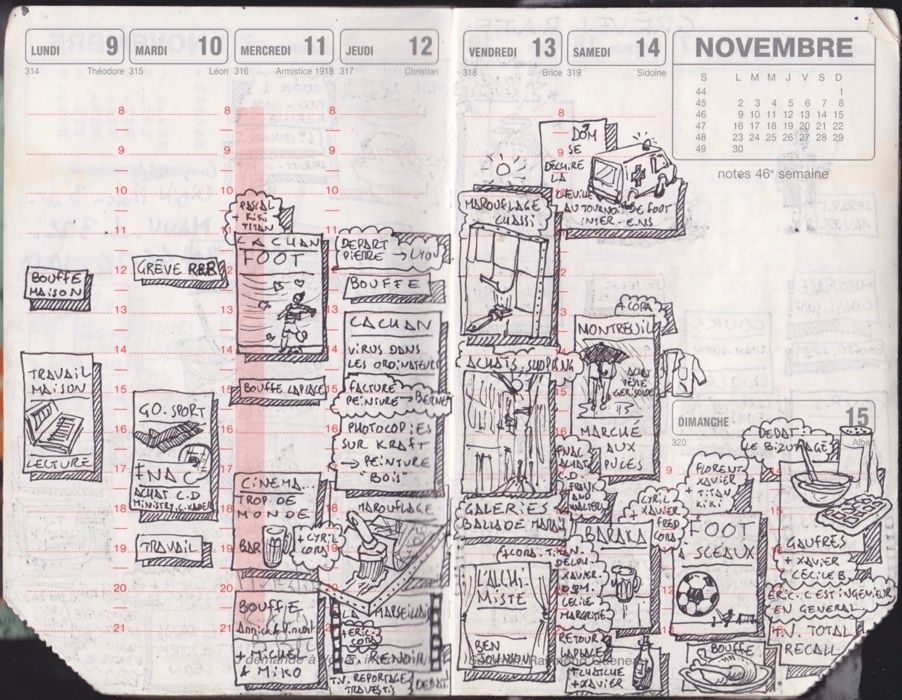 LUNDI 9
314 Théodore
8
9
10
11
12
13
14
15
16
17
18
19
20
21
BOUFFE
MAISON
TRAVAIL
MAISON
LECTURE
MARDI 10
315 Léon
GRÈVE RER
GO. SPORT
FNAC
ACHAT C.D
TRAVAIL
MERCREDI 11
316 Armistice 1918
PASCAL
+ KIKI
TITAN
CACHAN
FOOT
BOUFFE LAPLACE
CINEMA...
TROP DE
MONDE
BAR
+ CYRIL
CORA
BOUFFE
+ MICHEL
MIKO
JEUDI 12
317 Christian
DEPART
PIERRE → LYON
BOUFFE
CACHAN
VIRUS DANS
LES ORDINATEURS
FACTURE
PEINTURE →
PHOTOCOPIES
SUR KRAFT
→ PEINTURE
BOIS
MAROUFLAGE
LA MARSEILLAISE
+ ERIC
CORA
J. RENOIR
T.V. REPORTAGE
TRAVESTIS
DEBAT
VENDREDI 13
318 Brice
MAROUFLAGE
CHASSI
ACHATS. SHOPPING
GALERIES
BALLADE MARAIS
+ CORA. TITAN.
L'ALCHI
MISTE
BEN
JOHNSON
SAMEDI 14
319 Sidoine
DOM
SE
DECHIRE
LA
CHEVILLE
AU TOURNOI DE FOOT
INTER-ENS
+ CORA
MONTREUIL
ACHAT
VESTE
MARCHÉ
AUX
PUCES
FNAC
ACHAT
C.D
FRANK
AND
WALTERS
CYRIL
+ XAVIER
FRED
CORA
BARAKA
XAVIER.
DOM.
CECILE
MARGRITE
RETOUR
LAPLACE
+ XAVIER
NOVEMBRE
S L M M J V S D
44 1
45 2 3 4 5 6 7 8
46 9 10 11 12 13 14 15
47 16 17 18 19 20 21 22
48 23 24 25 26 27 28 29
49 30
notes 46e semaine
DIMANCHE 15
320 Albert
FLORENT
XAVIER
+ TITAN
KIKI
FOOT
A SCEAUX
BOUFFE
DEBAT:
LE BIZUTAGE
GAUFRES
+ XAVIER
CECILE B.
ERIC: C'EST INGENIEUR
EN GENERAL
+ V. TOTAL
RECALL